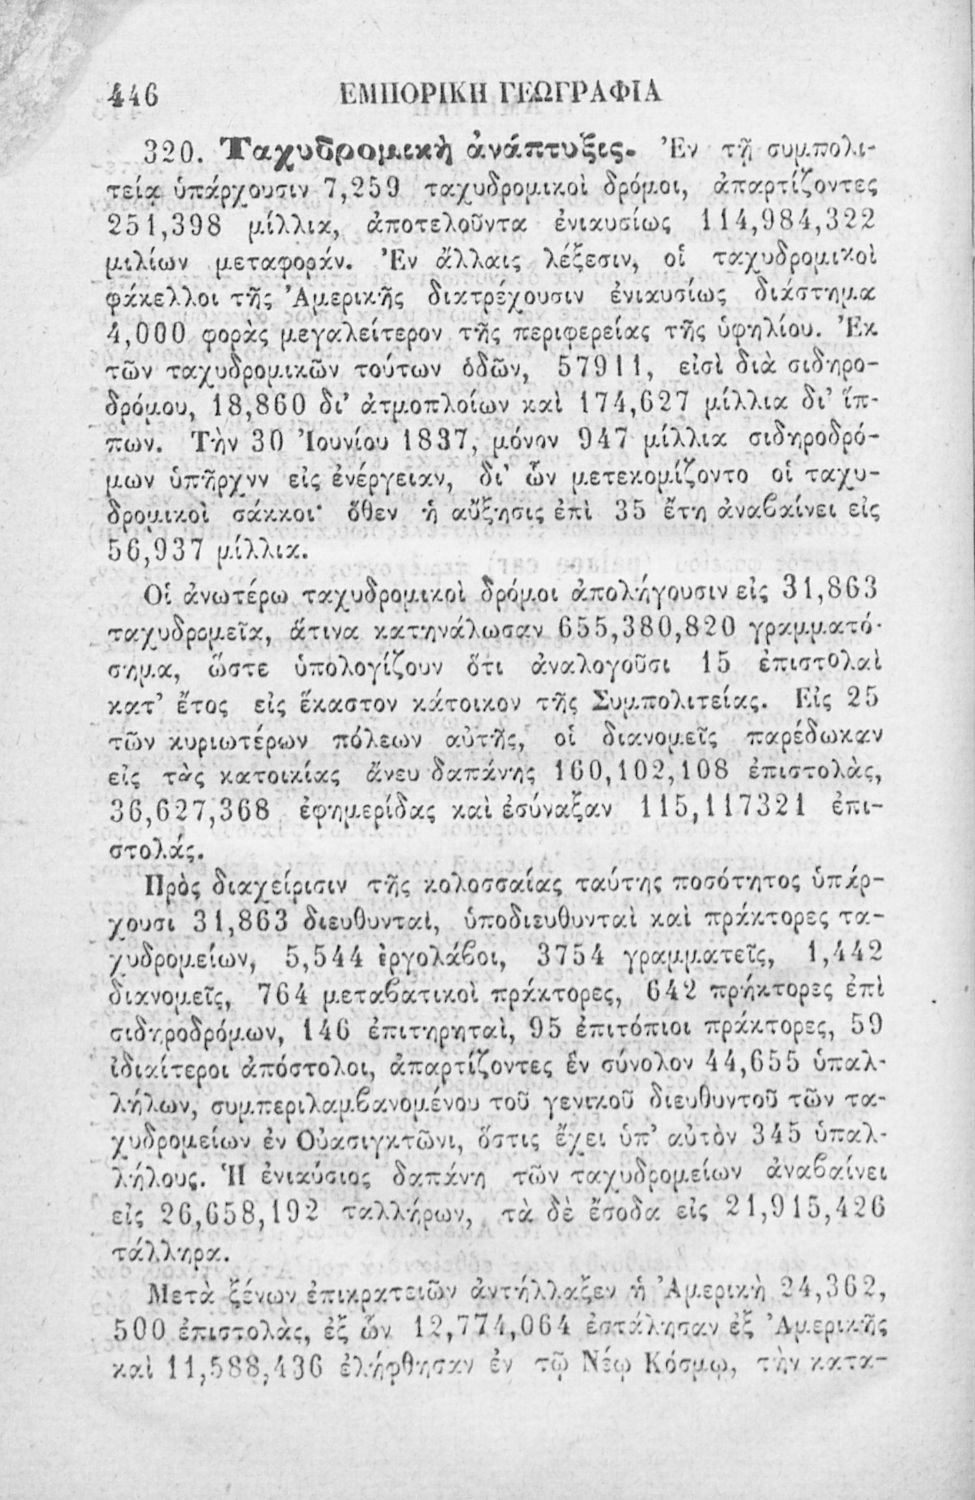 446 ΕΜΠΟΡΙΚΗ ΓΕΩΓΡΑΦΙΑ
320. Ταχυδρομικὴ ἀνάπτυξις. Ἐν τῇ συμπολι-
τείᾳ ὑπάρχουσιν 7,259 ταχυδρομικοὶ δρόμοι, ἀπαρτίζοντες
251,398 μίλλια, ἀποτελοῦντα ἐνιαυσίως 114,984,322
μιλίων μεταφοράν. Ἐν ἄλλαις λέξεσιν, οἱ ταχυδρομικοὶ
φάκελλοι τῆς Ἀμερικῆς διατρέχουσιν ἐνιαυσίως διάστημα
4,000 φορὰς μεγαλείτερον τῆς περιφερείας τῆς ὑφηλίου. Ἐκ
τῶν ταχυδρομικῶν τούτων ὁδῶν, 57911, εἰσὶ διὰ σιδηρο-
δρόμου, 18,860 δι’ ἀτμοπλοίων καὶ 174,627 μίλλια δι’ ἵπ-
πων. Τὴν 30 Ἰουνίου 1837, μόνον 947 μίλλια σιδηροδρό-
μων ὑπῆρχνν εἰς ἐνέργειαν, δι’ ὧν μετεκομίζοντο οἱ ταχυ-
δρομικοὶ σάκκοι· ὅθεν ἡ αὔξησις ἐπὶ 35 ἔτη ἀναβαίνει εἰς
56,937 μίλλια.
Οἱ ἀνωτέρω ταχυδρομικοὶ δρόμοι ἀπολήγουσιν εἰς 31,863
ταχυδρομεῖα, ἅτινα κατηνάλωσαν 655,380,820 γραμματό-
σημα, ὥστε ὑπολογίζουν ὅτι ἀναλογοῦσι 15 ἐπιστολαὶ
κατ’ ἔτος εἰς ἕκαστον κάτοικον τῆς Συμπολιτείας. Εἰς 25
τῶν κυριωτέρων πόλεων αὐτῆς, οἱ διανομεῖς παρέδωκαν
εἰς τὰς κατοικίας ἄνευ δαπάνης 160,102,108 ἐπιστολὰς,
36,627,368 ἐφημερίδας καὶ ἐσύναξαν 115,117321 ἐπι-
στολάς.
Πρὸς διαχείρισιν τῆς κολοσσαίας ταύτης ποσότητος ὑπάρ-
χουσι 31,863 διευθυνταὶ, ὑποδιευθυνταὶ καὶ πράκτορες τα-
χυδρομείων, 5,544 ἐργολάβοι, 3754 γραμματεῖς, 1,442
διανομεῖς, 764 μεταβατικοὶ πράκτορες, 642 πρήκτορες ἐπὶ
σιδηροδρόμων, 146 ἐπιτηρηταὶ, 95 ἐπιτόπιοι πράκτορες, 59
ἰδιαίτεροι ἀπόστολοι, ἀπαρτίζοντες ἓν σύνολον 44,655 ὑπαλ-
λήλων, συμπεριλαμβανομένου τοῦ γενικοῦ διευθυντοῦ τῶν τα-
χυδρομείων ἐν Οὐασιγκτῶνι, ὅστις ἔχει ὑπ’ αὐτὸν 345 ὑπαλ-
λήλους. Ἡ ἐνιαύσιος δαπάνη τῶν ταχυδρομείων ἀναβαίνει
εἰς 26,658,192 ταλλήρων, τὰ δὲ ἔσοδα εἰς 21,915,426
τάλληρα.
Μετὰ ξένων ἐπικρατειῶν ἀντήλλαξεν ἡ Ἀμερικὴ 24,362,
500 ἐπιστολὰς, ἐξ ὧν 12,774,064 ἐστάλησαν ἐξ Ἀμερικῆς
καὶ 11,588,436 ἐλήφθησαν ἐν τῷ Νέῳ Κόσμῳ, τὴν κατα-